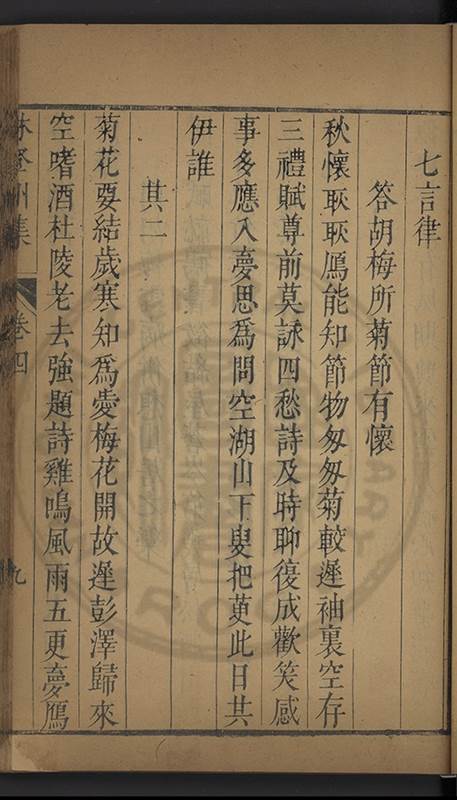 七言律
答胡梅所菊節有懷
秋懷耿耿鴈能知節物匆匆菊較遲袖裏空存
三禮賦尊前莫詠四愁詩及時聊復成歡笑感
事多應入夢思爲問空湖山下叟把萸此日共
伊誰
其二
菊花要結歲寒知爲愛梅花開故遲彭澤歸來
空嗜酒杜陵老去強題詩雞鳴風雨五更夢鴈
林登州集
卷四
九